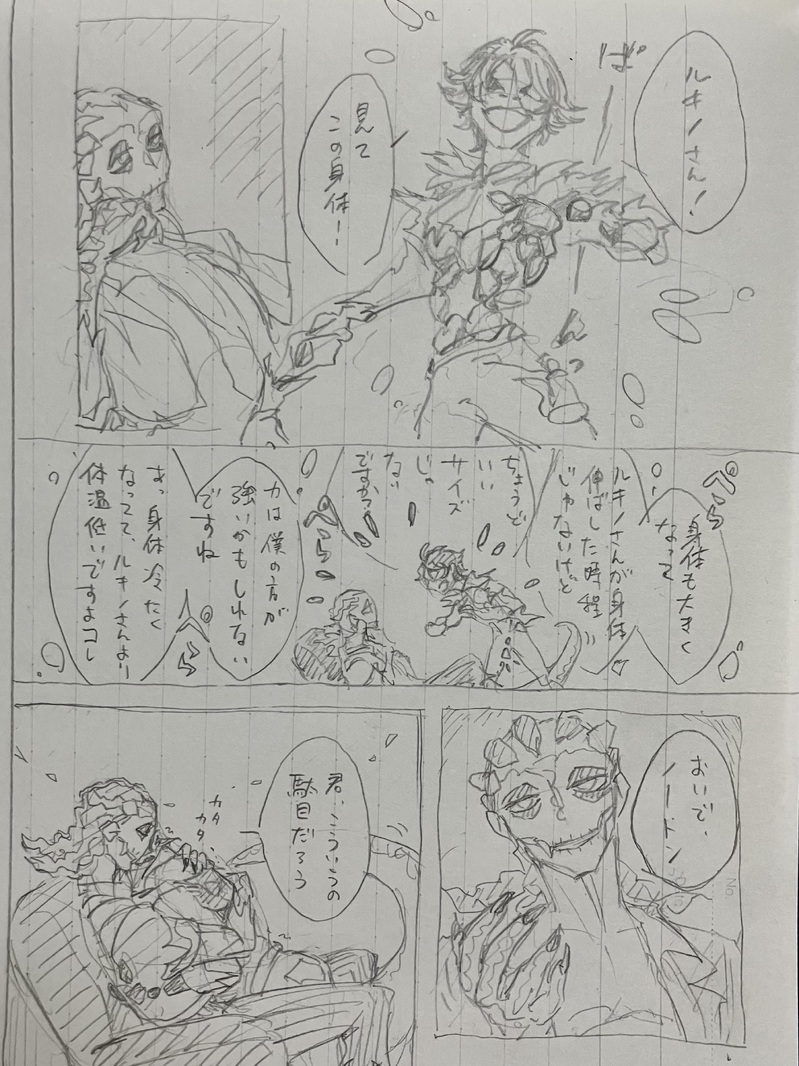 ルキノさん!
ばーーんっ
見て
この身体!
ぺら
身体も大きく
なって
ルキノさんが身体
伸ばした時程
じゃないけど
ちょうど
いい
サイズ
じゃ
ない
ですか?
ぺら
力は僕の方が
強いかもしれない
ですね
ぺら
あっ身体冷たく
なってて、ルキノさんより
体温低いですよコレ
おいで、
ノートン
君、こういうの
駄目だろう
カタ
カタ
No